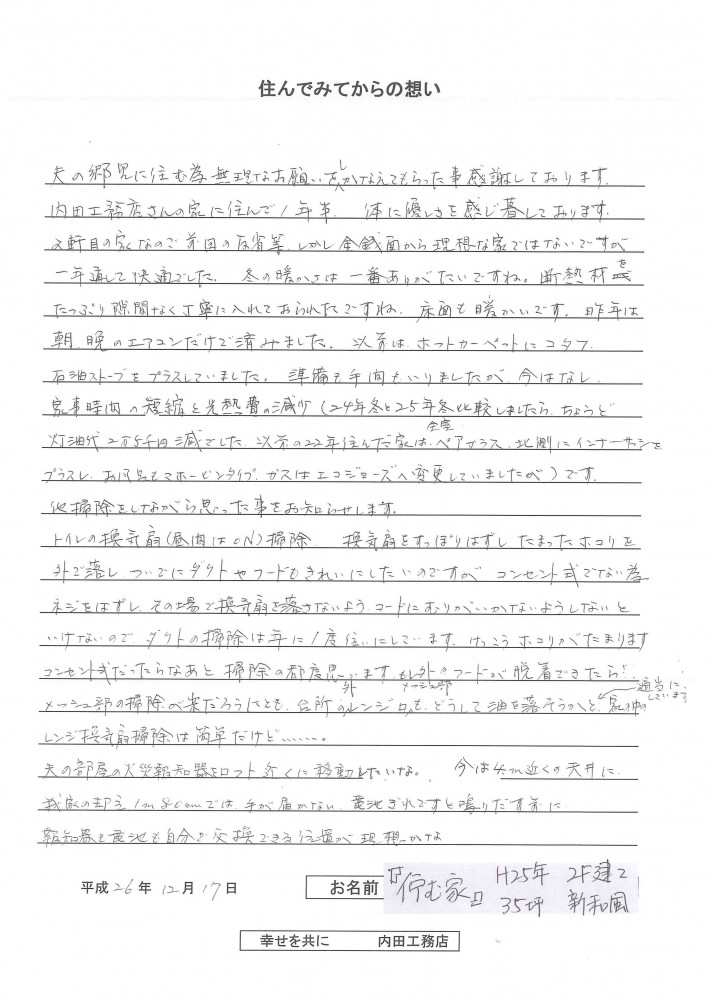 住んでみてからの想い
夫の郷里に住む為無理なお願いをしかなえてもらった事感謝しております。
内田工務店さんの家に住んで1年半 体に優しさを感じ暮しております。
2軒目の家なので前回の反省等、しかし金銭面から理想な家ではないですが
一年通して快適でした。 冬の暖かさは一番ありがたいですね。断熱材を
たっぷり隙間なく丁寧に入れておられたですね。床面も暖かいです。昨年は
朝、晩のエアコンだけで済みました。以前は、ホットカーペットにコタツ
石油ストーブをプラスしていました。準備も手間もいりましたが、今はなし、
家事時間の短縮と光熱費の減少(24年冬と25年冬比較しましたら、ちょうど
灯油代2万5千円減でした、以前の22年住んだ家は、全室ペアガラス、北側にインナーサッシを
プラスし、お風呂もマホービンタイプ、ガスはエコジョーズへ変更していましたが)です。
他掃除をしながら思った事をお知らせします。
トイレの換気扇(昼間はON)掃除 換気扇をすっぽりはずし、たまったホコリを
外で落し ついでにダクトやフードもきれいにしたいのですが コンセント式でない為
ネジをはずし、その場で換気扇を落さないよう、コードにむりがいかないようしないと
いけないので、ダクトの掃除は年に1度位いにしています。けっこうホコリがたまります
コンセント式だったらなあと 掃除の都度思います。もし外のフードが脱着できたら!
メッシュ部
メッシュ部の掃除が楽だろうにとも、台所の外レンジ口も、どうして油を落そうかと、家の中の
適当にしています
レンジ換気扇掃除は簡単だけど………。
夫の部屋の火災報知器をロフト近くに移動したいな。 今は4m近くの天井に、
我家の却立1m80cmでは、手が届かない、電池ぎれですと鳴りだす前に
報知器も電池も自分で交換できる位置が 理想かな
平成26年 12月17日
お名前 『佇む家』 H25年 2F建て
35坪 新和風
幸せを共に 内田工務店